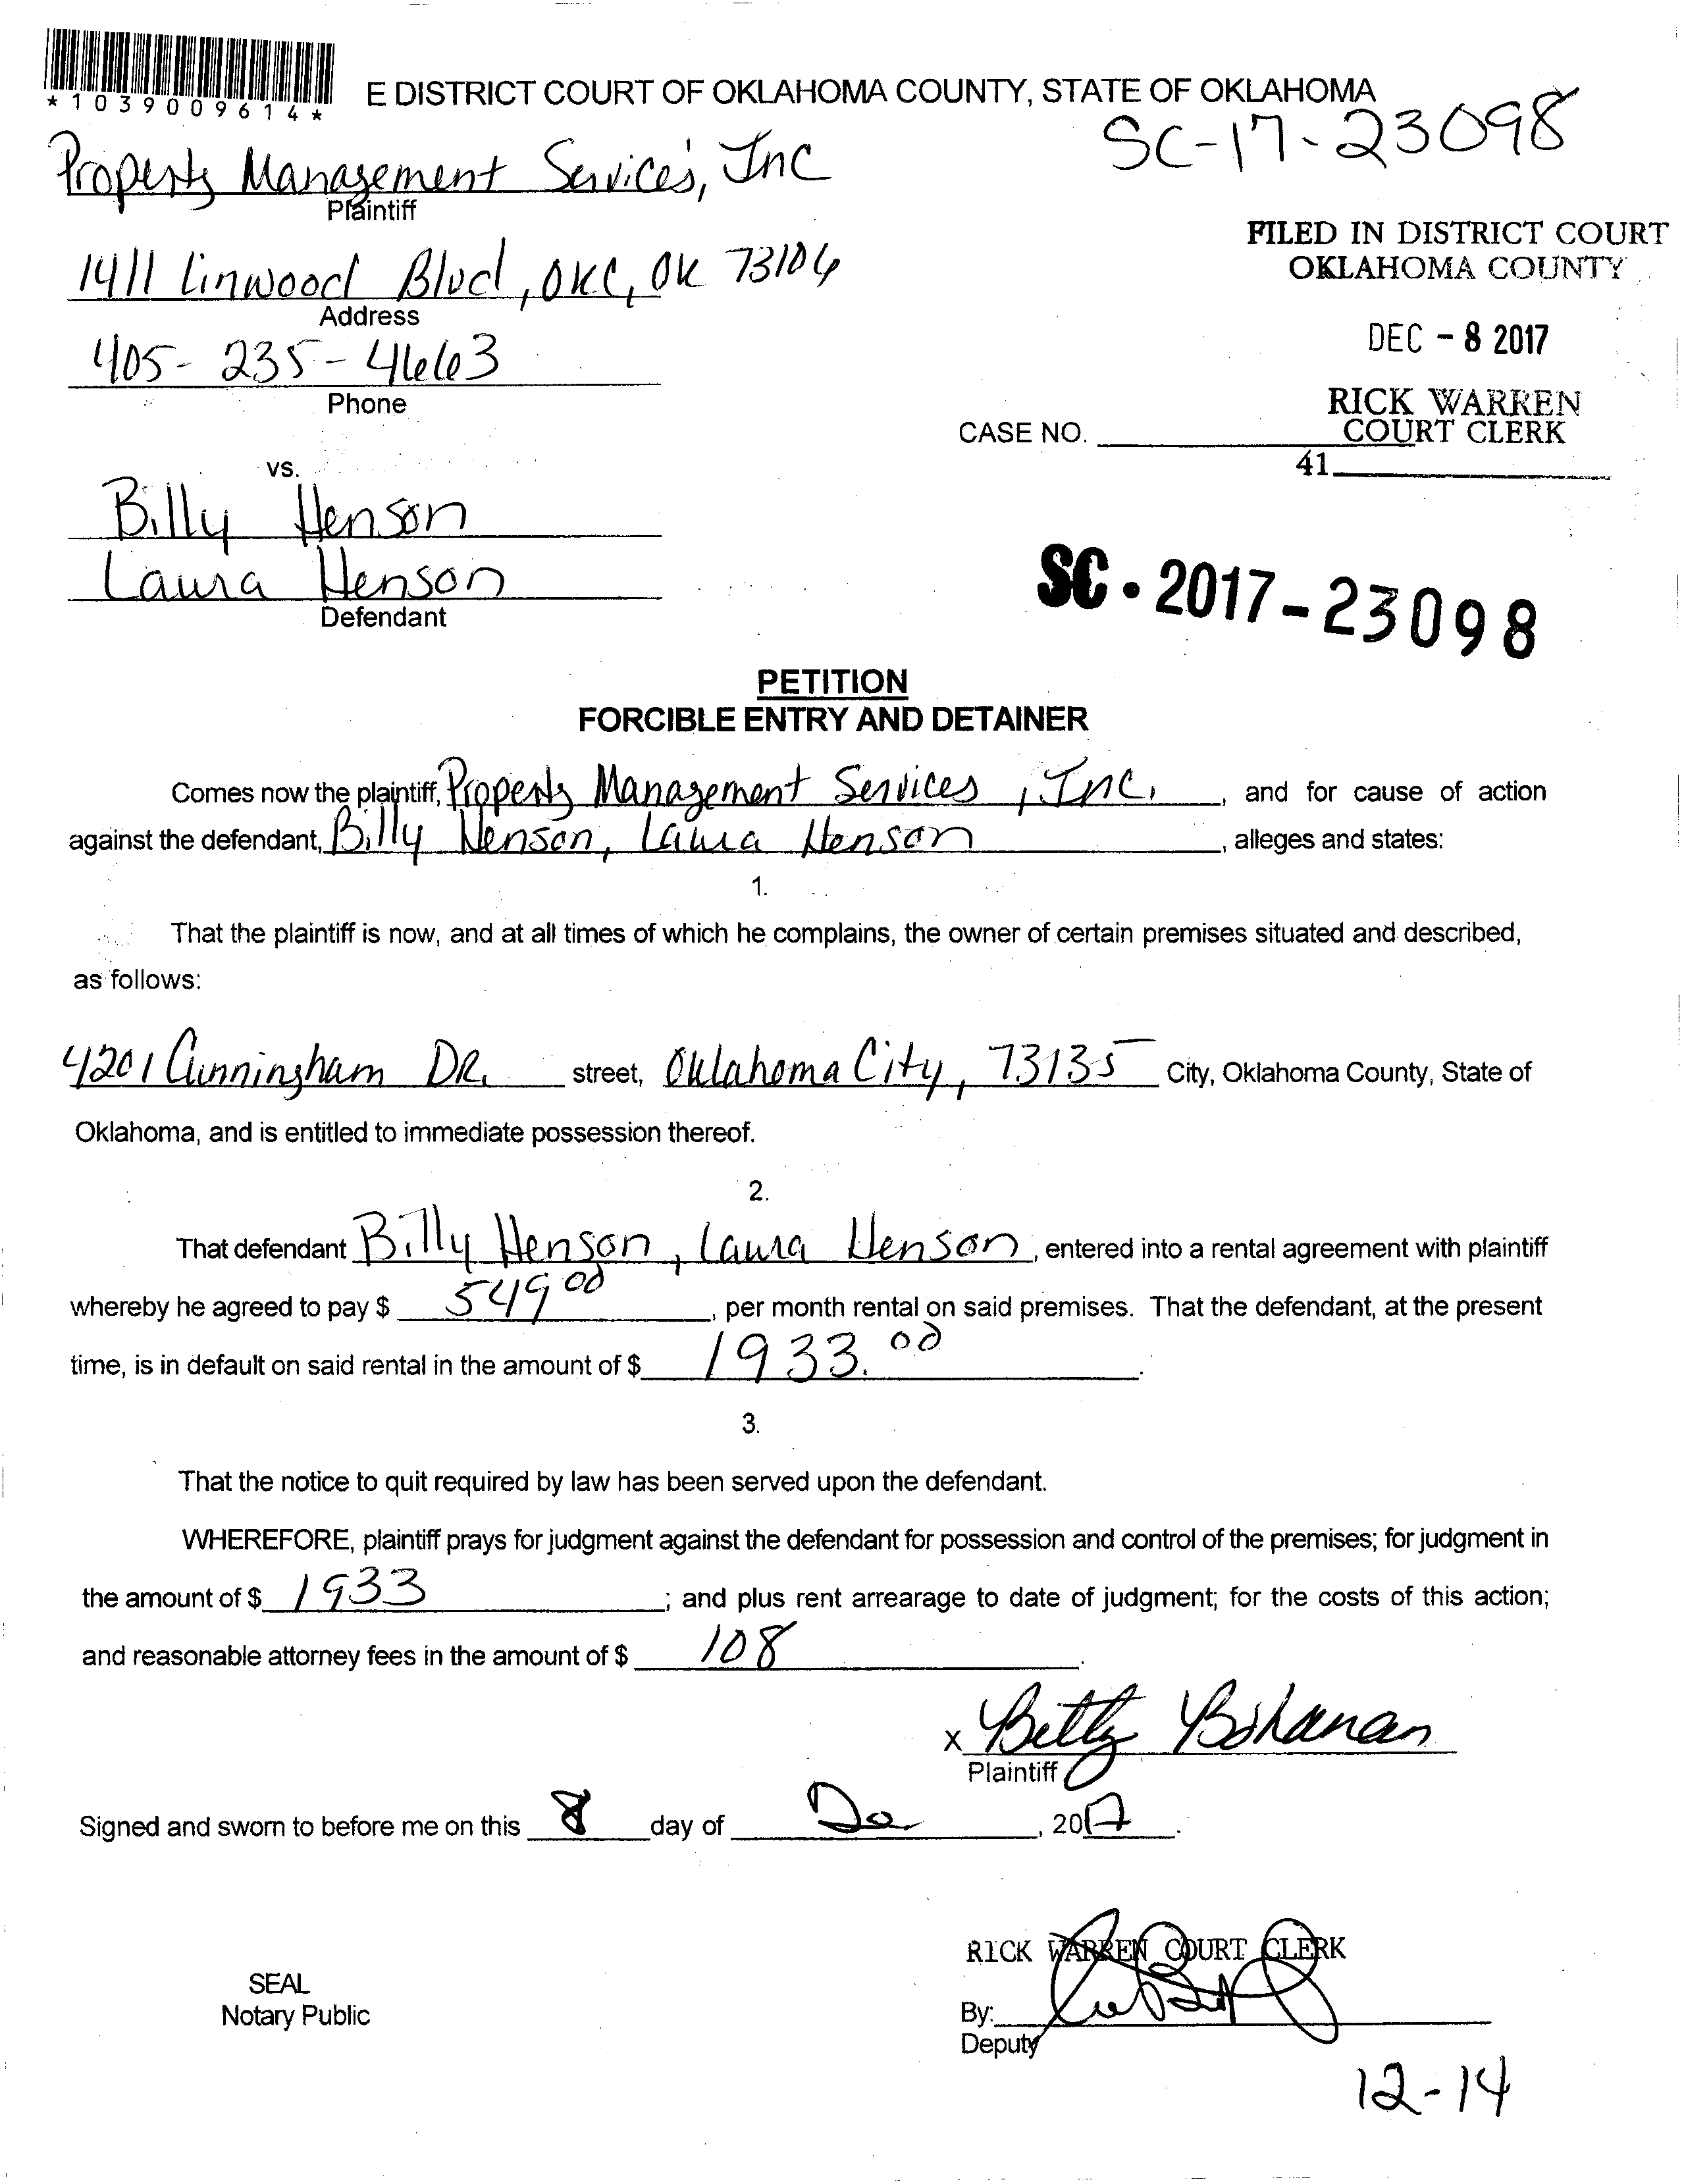 *1039009614*
E DISTRICT COURT OF OKLAHOMA COUNTY, STATE OF OKLAHOMA
SC-17-23098
Property Management Service's, Inc
Plaintiff
1411 Linwood Blvd, OKC, OK 73106
Address
405-235-4663
Phone
FILED IN DISTRICT COURT
OKLAHOMA COUNTY
DEC - 8 2017
RICK WARREN
COURT CLERK
CASE NO.
41
vs.
Billy Henson
Laura Henson
Defendant
SC-2017-23098
PETITION
FORCIBLE ENTRY AND DETAINER
Comes now the plaintiff, Property Management Services, Inc., and for cause of action
against the defendant, Billy Henson, Laura Henson, alleges and states:
1.
That the plaintiff is now, and at all times of which he complains, the owner of certain premises situated and described,
as follows:
4201 Cunningham DR. street, Oklahoma City, 73135 City, Oklahoma County, State of
Oklahoma, and is entitled to immediate possession thereof.
2.
That defendant Billy Henson, Laura Henson, entered into a rental agreement with plaintiff
whereby he agreed to pay $ 549 00, per month rental on said premises. That the defendant, at the present
time, is in default on said rental in the amount of $ 1933.00.
3.
That the notice to quit required by law has been served upon the defendant.
WHEREFORE, plaintiff prays for judgment against the defendant for possession and control of the premises; for judgment in
the amount of $ 1933; and plus rent arrearage to date of judgment; for the costs of this action;
and reasonable attorney fees in the amount of $ 108.
x Betty Bohanan
Plaintiff
Signed and sworn to before me on this 8 day of De, 2017.
RICK WARREN COURT CLERK
SEAL
Notary Public
By:
Deputy
12-14